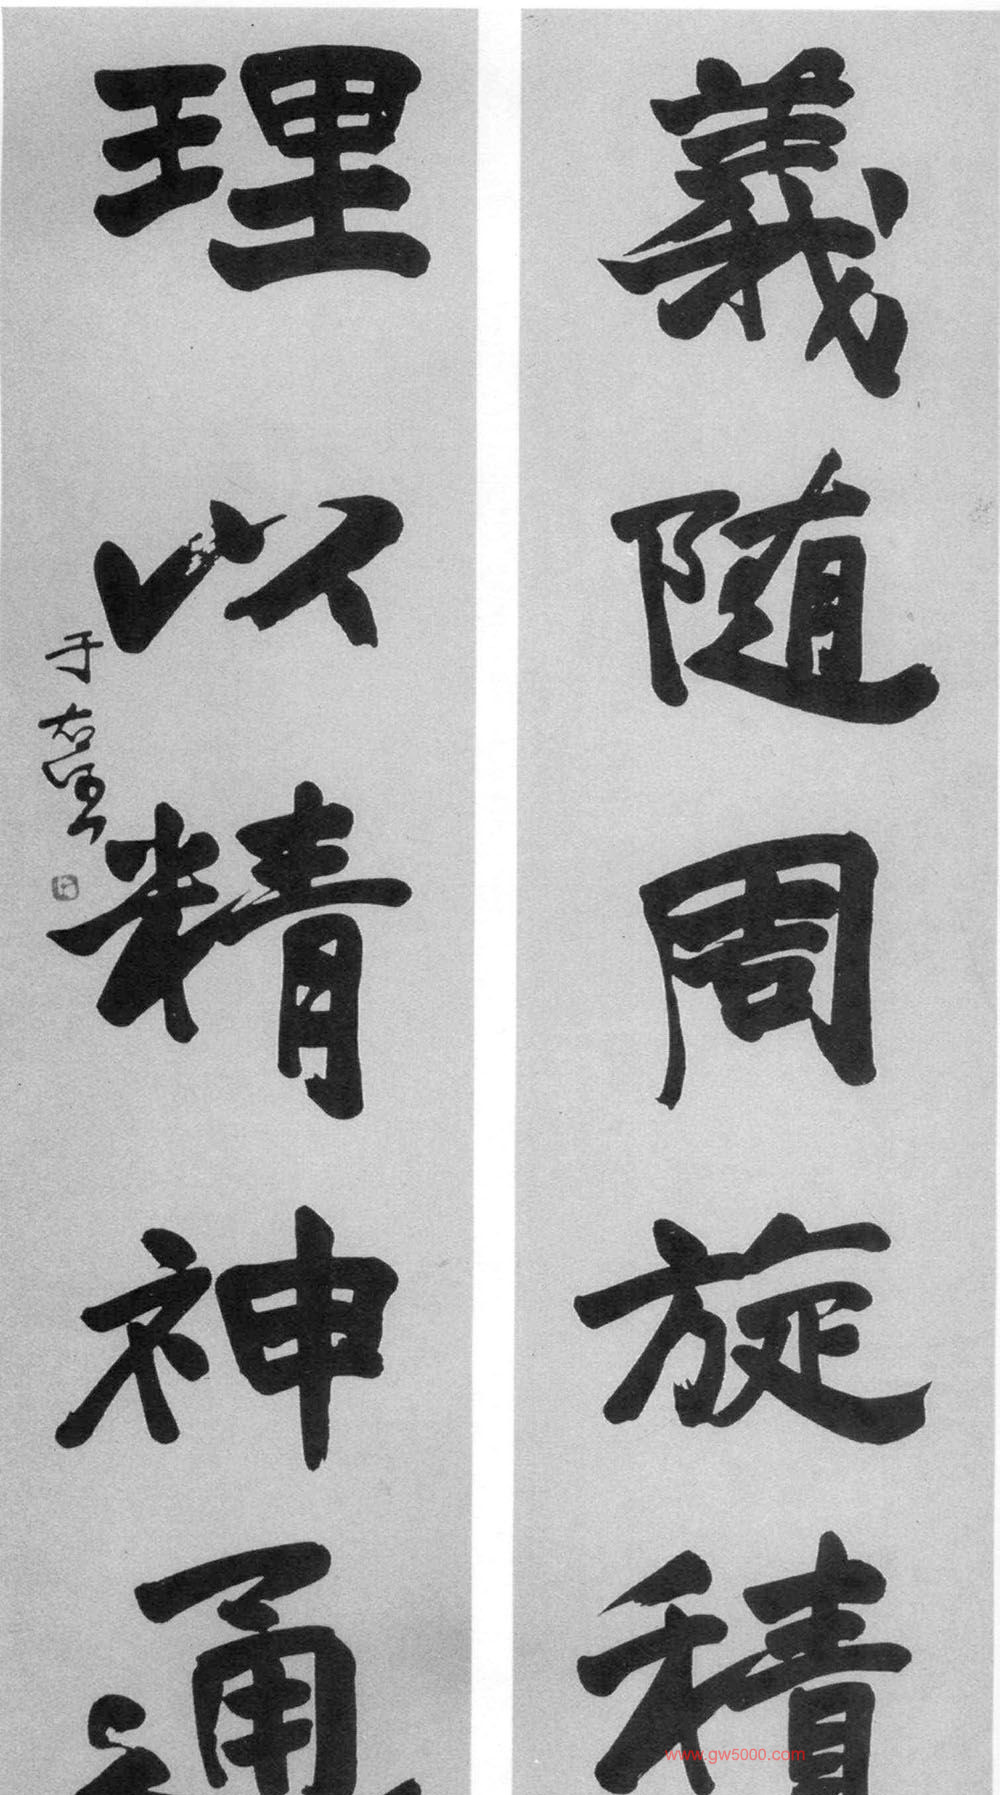 義随周旋積
理以精神通
于右任
www.gw5000.com